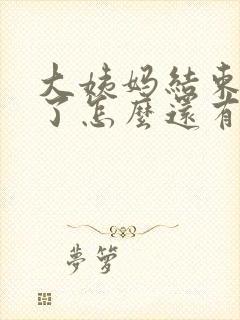 大姨妈結束
了怎麽還有
夢箩